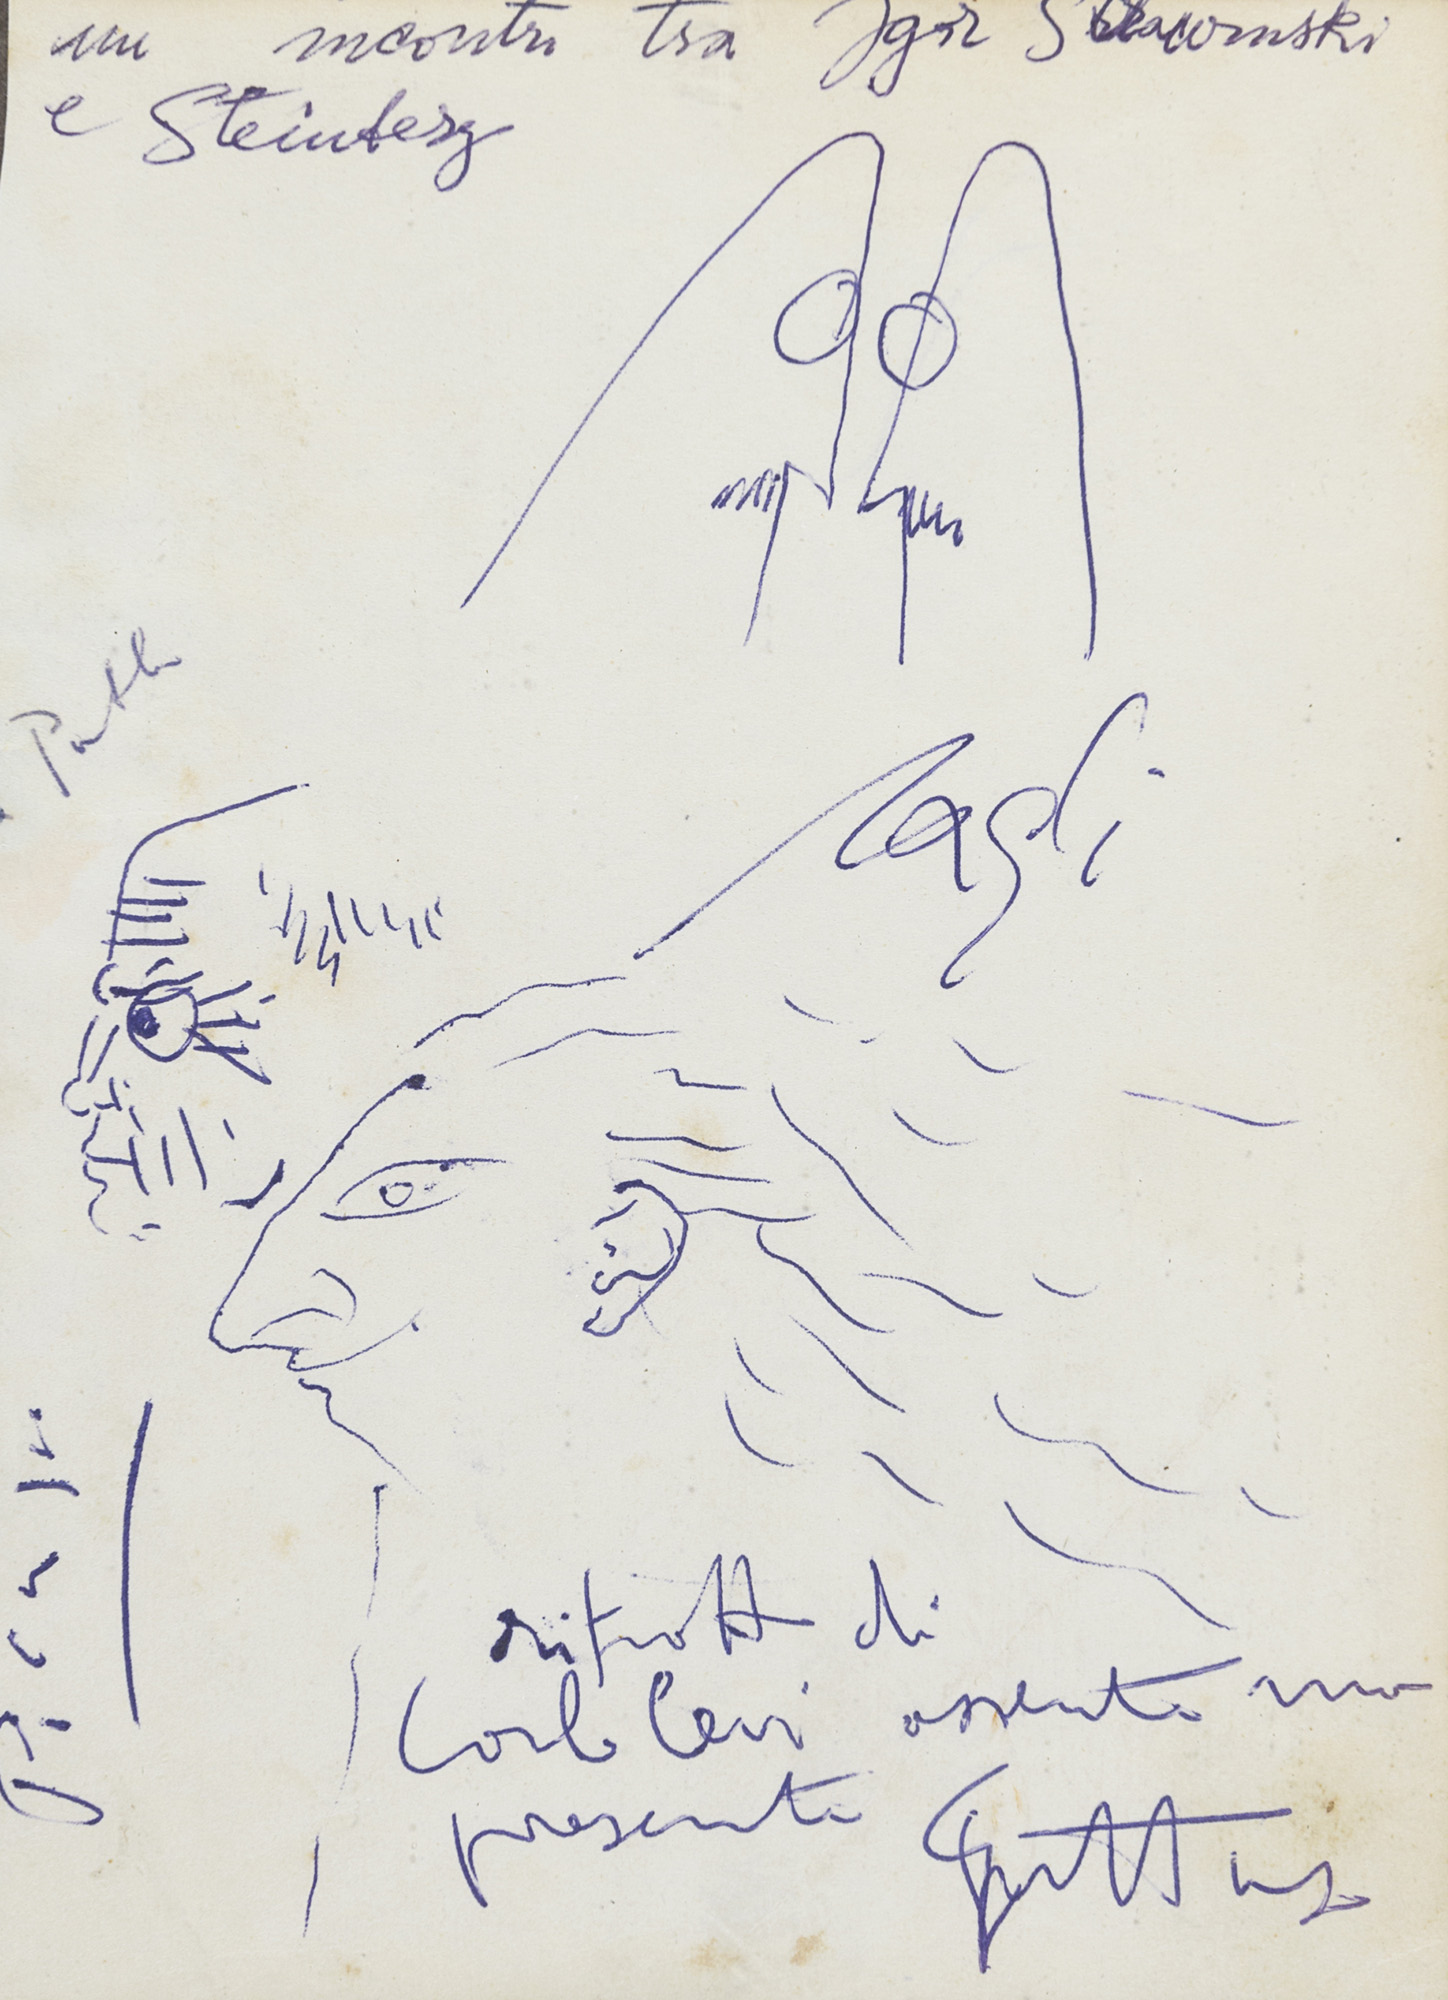 un incontro tra Igor Strawinski
e Steinberg
Cagli
ritratto di
Carlo Levi assente ma
presente Guttuso